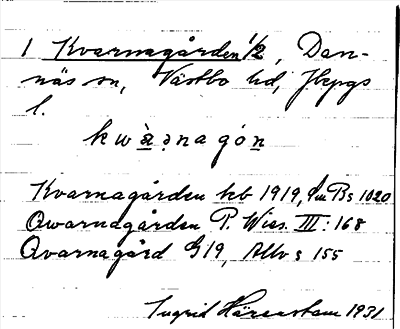 1 Kvarnagården 1/2, Dan-
näs sn, Västbo hd, Jbpgs
l.
kwàənagón
Kvarnagården hb 1919, Sm Bs 1020
Qwarnagården P. Wies. III: 168
Qvarnagård G19, Allv s 155
Ingrid Härenstam 1931